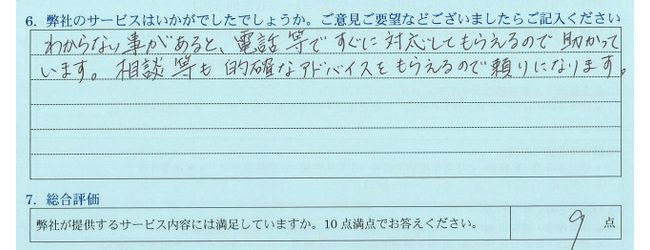 6. 弊社のサービスはいかがでしたでしょうか。ご意見ご要望などございましたらご記入ください
わからない事があると、電話等ですぐに対応してもらえるので助かって
います。相談等も的確なアドバイスをもらえるので頼りになります。
7. 総合評価
弊社が提供するサービス内容には満足していますか。10点満点でお答えください。 9 点